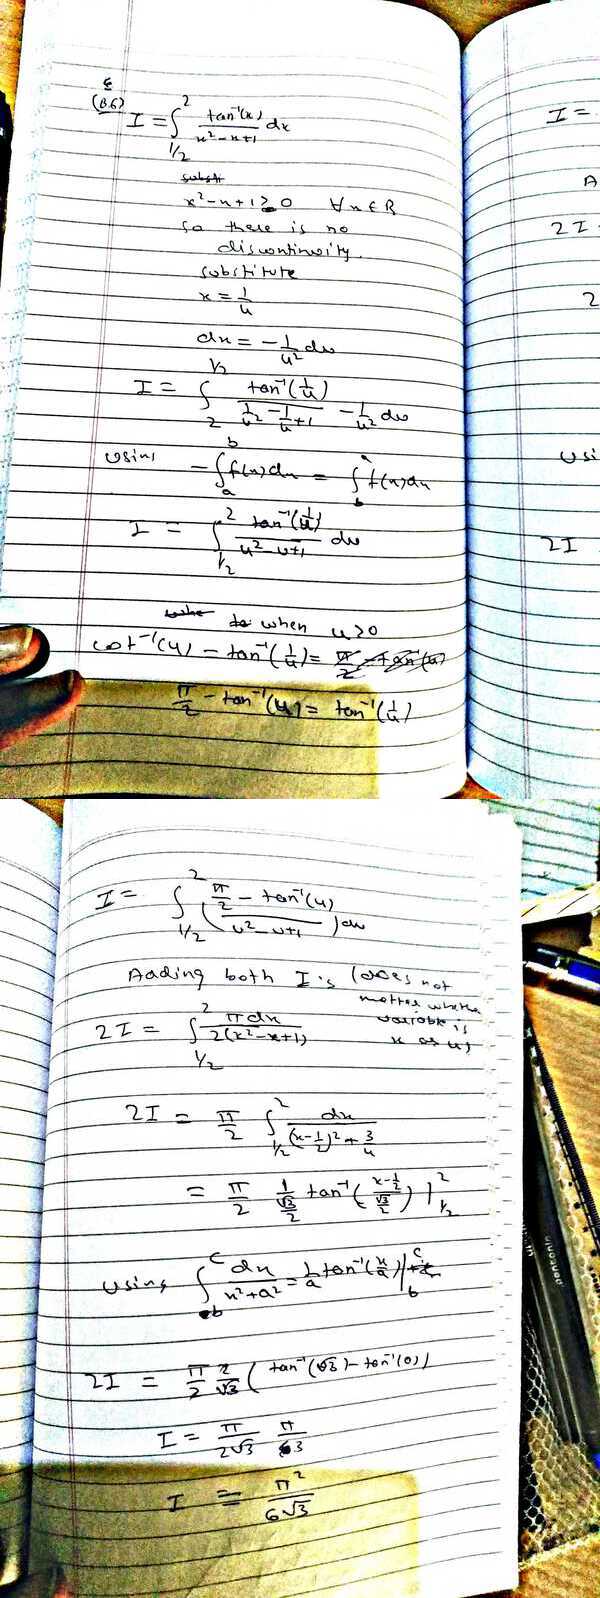 (B.6)
I = ∫_{1/2}^{2} tan⁻¹(x)/(x²-x+1) dx
x²-x+1 ≥ 0 ∀ x ∈ R
So there is no
discontinuity.
substitute
x = 1/u
dx = -1/u² du
I = ∫_{2}^{1/2} tan⁻¹(1/u)/(1/u² - 1/u + 1) -1/u² du
using -∫_{a}^{b} f(x)dx = ∫_{b}^{a} f(x)dx
I = ∫_{1/2}^{2} tan⁻¹(1/u)/(u²-u+1) du
when u>0
cot⁻¹(u) - tan⁻¹(1/u) = π/2 - tan⁻¹(u)
π/2 - tan⁻¹(u) = tan⁻¹(1/u)
I =
A
2I
2
usi
2I
I = ∫_{1/2}^{2} (π/2 - tan⁻¹(u)/(u²-u+1)) du
Adding both I's (does not
matter whether
variable is
x or u)
2I = ∫_{1/2}^{2} πdx/2(x²-x+1)
2I = π/2 ∫_{1/2}^{2} dx/((x-1/2)² + 3/4)
= π/2 1/(√3/2) tan⁻¹((x-1/2)/(√3/2)) |_{1/2}^{2}
using ∫_{b}^{c} dx/(x²+a²) = 1/a tan⁻¹(x/a) |_{b}^{c}
2I = π/2 2/√3 (tan⁻¹(√3) - tan⁻¹(0))
I = π/2√3 π/3
I = π²/6√3